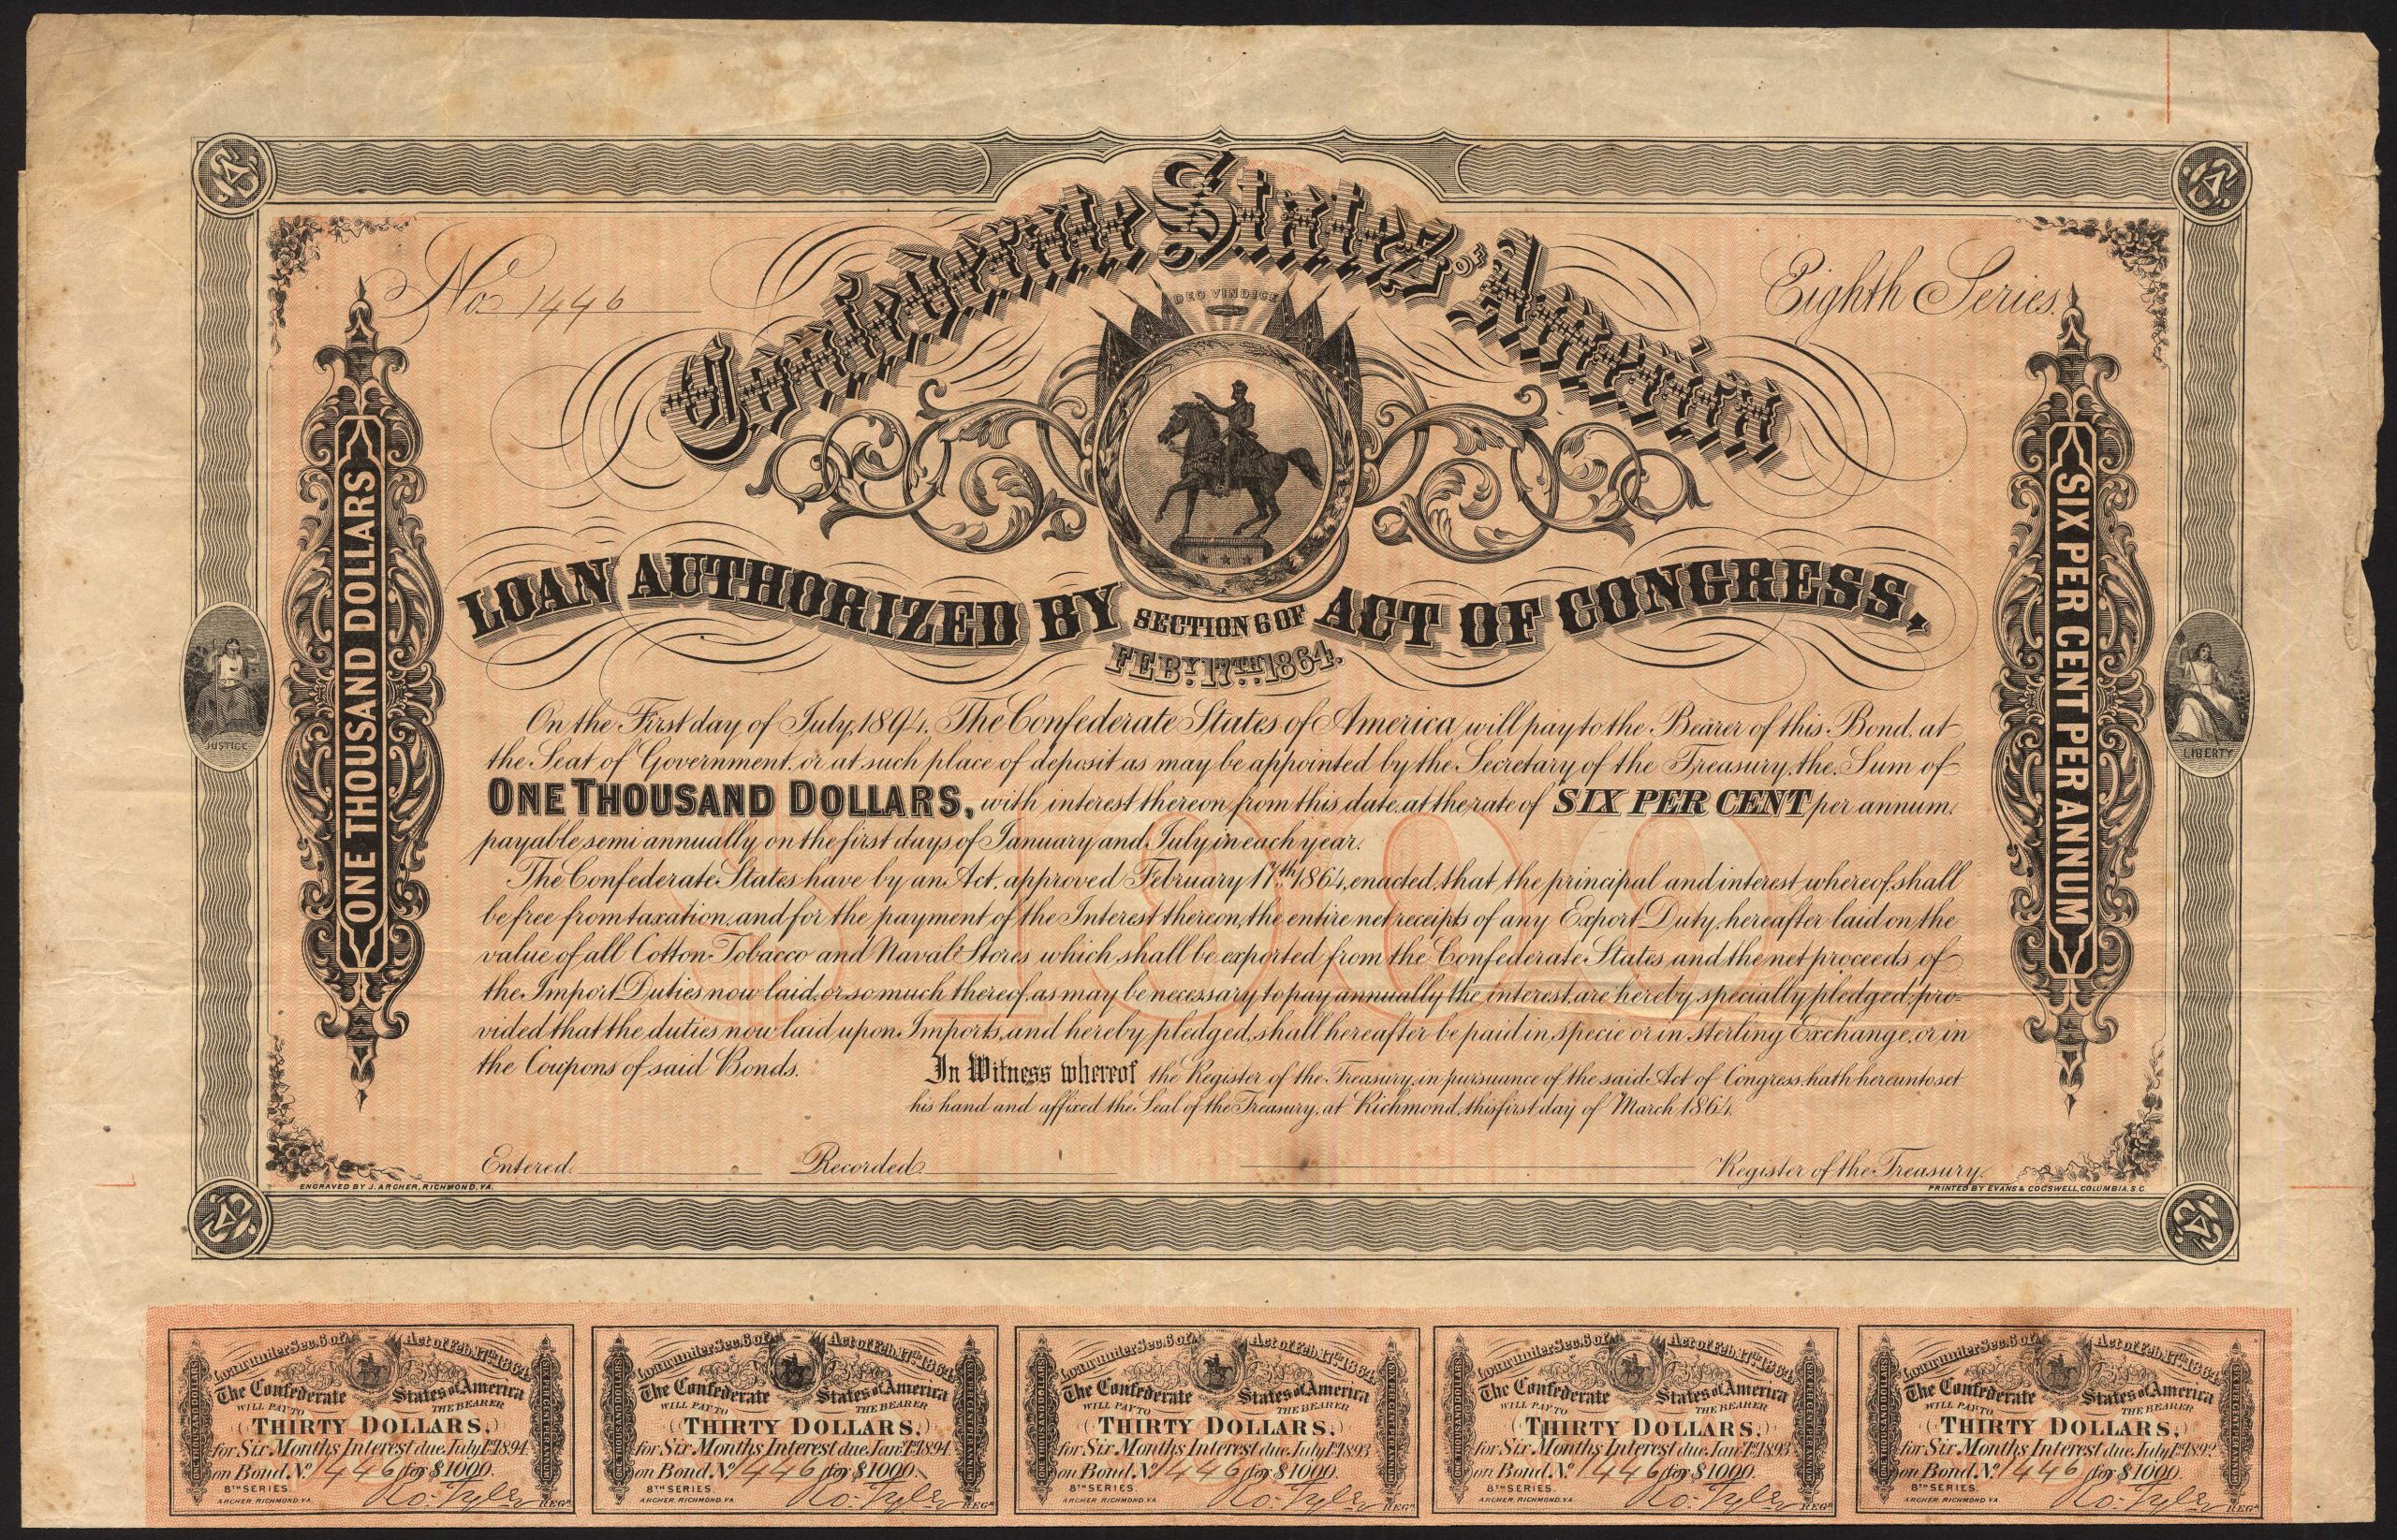 No 1446
Eighth Series.
Confederate States of America
DEO VINDICE
LOAN AUTHORIZED BY SECTION 6 OF ACT OF CONGRESS,
FEBY. 17TH. 1864.
ONE THOUSAND DOLLARS
SIX PER CENT PER ANNUM
JUSTICE
LIBERTY
On the First day of July, 1894, The Confederate States of America, will pay to the Bearer of this Bond, at
the Seat of Government, or at such place of deposit as may be appointed by the Secretary of the Treasury, the Sum of
ONE THOUSAND DOLLARS, with interest thereon from this date, at the rate of SIX PER CENT per annum,
payable semi annually on the first days of January and July in each year.
The Confederate States have by an Act, approved February 17th 1864, enacted, that the principal and interest whereof, shall
be free from taxation, and for the payment of the Interest thereon, the entire net receipts of any Export Duty, hereafter laid on the
value of all Cotton Tobacco and Naval Stores which shall be exported from the Confederate States and the net proceeds of
the Import Duties now laid, or so much thereof, as may be necessary to pay annually the interest, are hereby specially pledged; pro-
vided that the duties now laid upon Imports, and hereby pledged, shall hereafter be paid in specie or in sterling Exchange, or in
the Coupons of said Bonds.
In Witness whereof the Register of the Treasury, in pursuance of the said Act of Congress, hath hereunto set
his hand and affixed the Seal of the Treasury, at Richmond, this first day of March 1864.
Entered. Recorded. Register of the Treasury.
ENGRAVED BY J. ARCHER, RICHMOND, VA.
PRINTED BY EVANS & COGSWELL, COLUMBIA. S.C.
$1000
Loan under Sec. 6 of Act of Feb. 17th 1864.
The Confederate States of America
WILL PAY TO THE BEARER
THIRTY DOLLARS,
for Six Months Interest due July 1st 1894
on Bond No. 1446 for $1000.
8TH SERIES.
ARCHER, RICHMOND, VA
Ro. Tyler REGR.
Loan under Sec. 6 of Act of Feb. 17th 1864.
The Confederate States of America
WILL PAY TO THE BEARER
THIRTY DOLLARS,
for Six Months Interest due Jany. 1st 1894
on Bond No. 1446 for $1000.
8TH SERIES.
ARCHER, RICHMOND, VA
Ro. Tyler REGR.
Loan under Sec. 6 of Act of Feb. 17th 1864.
The Confederate States of America
WILL PAY TO THE BEARER
THIRTY DOLLARS,
for Six Months Interest due July 1st 1893
on Bond No. 1446 for $1000.
8TH SERIES.
ARCHER, RICHMOND, VA
Ro. Tyler REGR.
Loan under Sec. 6 of Act of Feb. 17th 1864.
The Confederate States of America
WILL PAY TO THE BEARER
THIRTY DOLLARS,
for Six Months Interest due Jany. 1st 1893
on Bond No. 1446 for $1000.
8TH SERIES.
ARCHER, RICHMOND, VA
Ro. Tyler REGR.
Loan under Sec. 6 of Act of Feb. 17th 1864.
The Confederate States of America
WILL PAY TO THE BEARER
THIRTY DOLLARS,
for Six Months Interest due July 1st 1892
on Bond No. 1446 for $1000
8TH SERIES.
ARCHER, RICHMOND, VA
Ro. Tyler REGR.